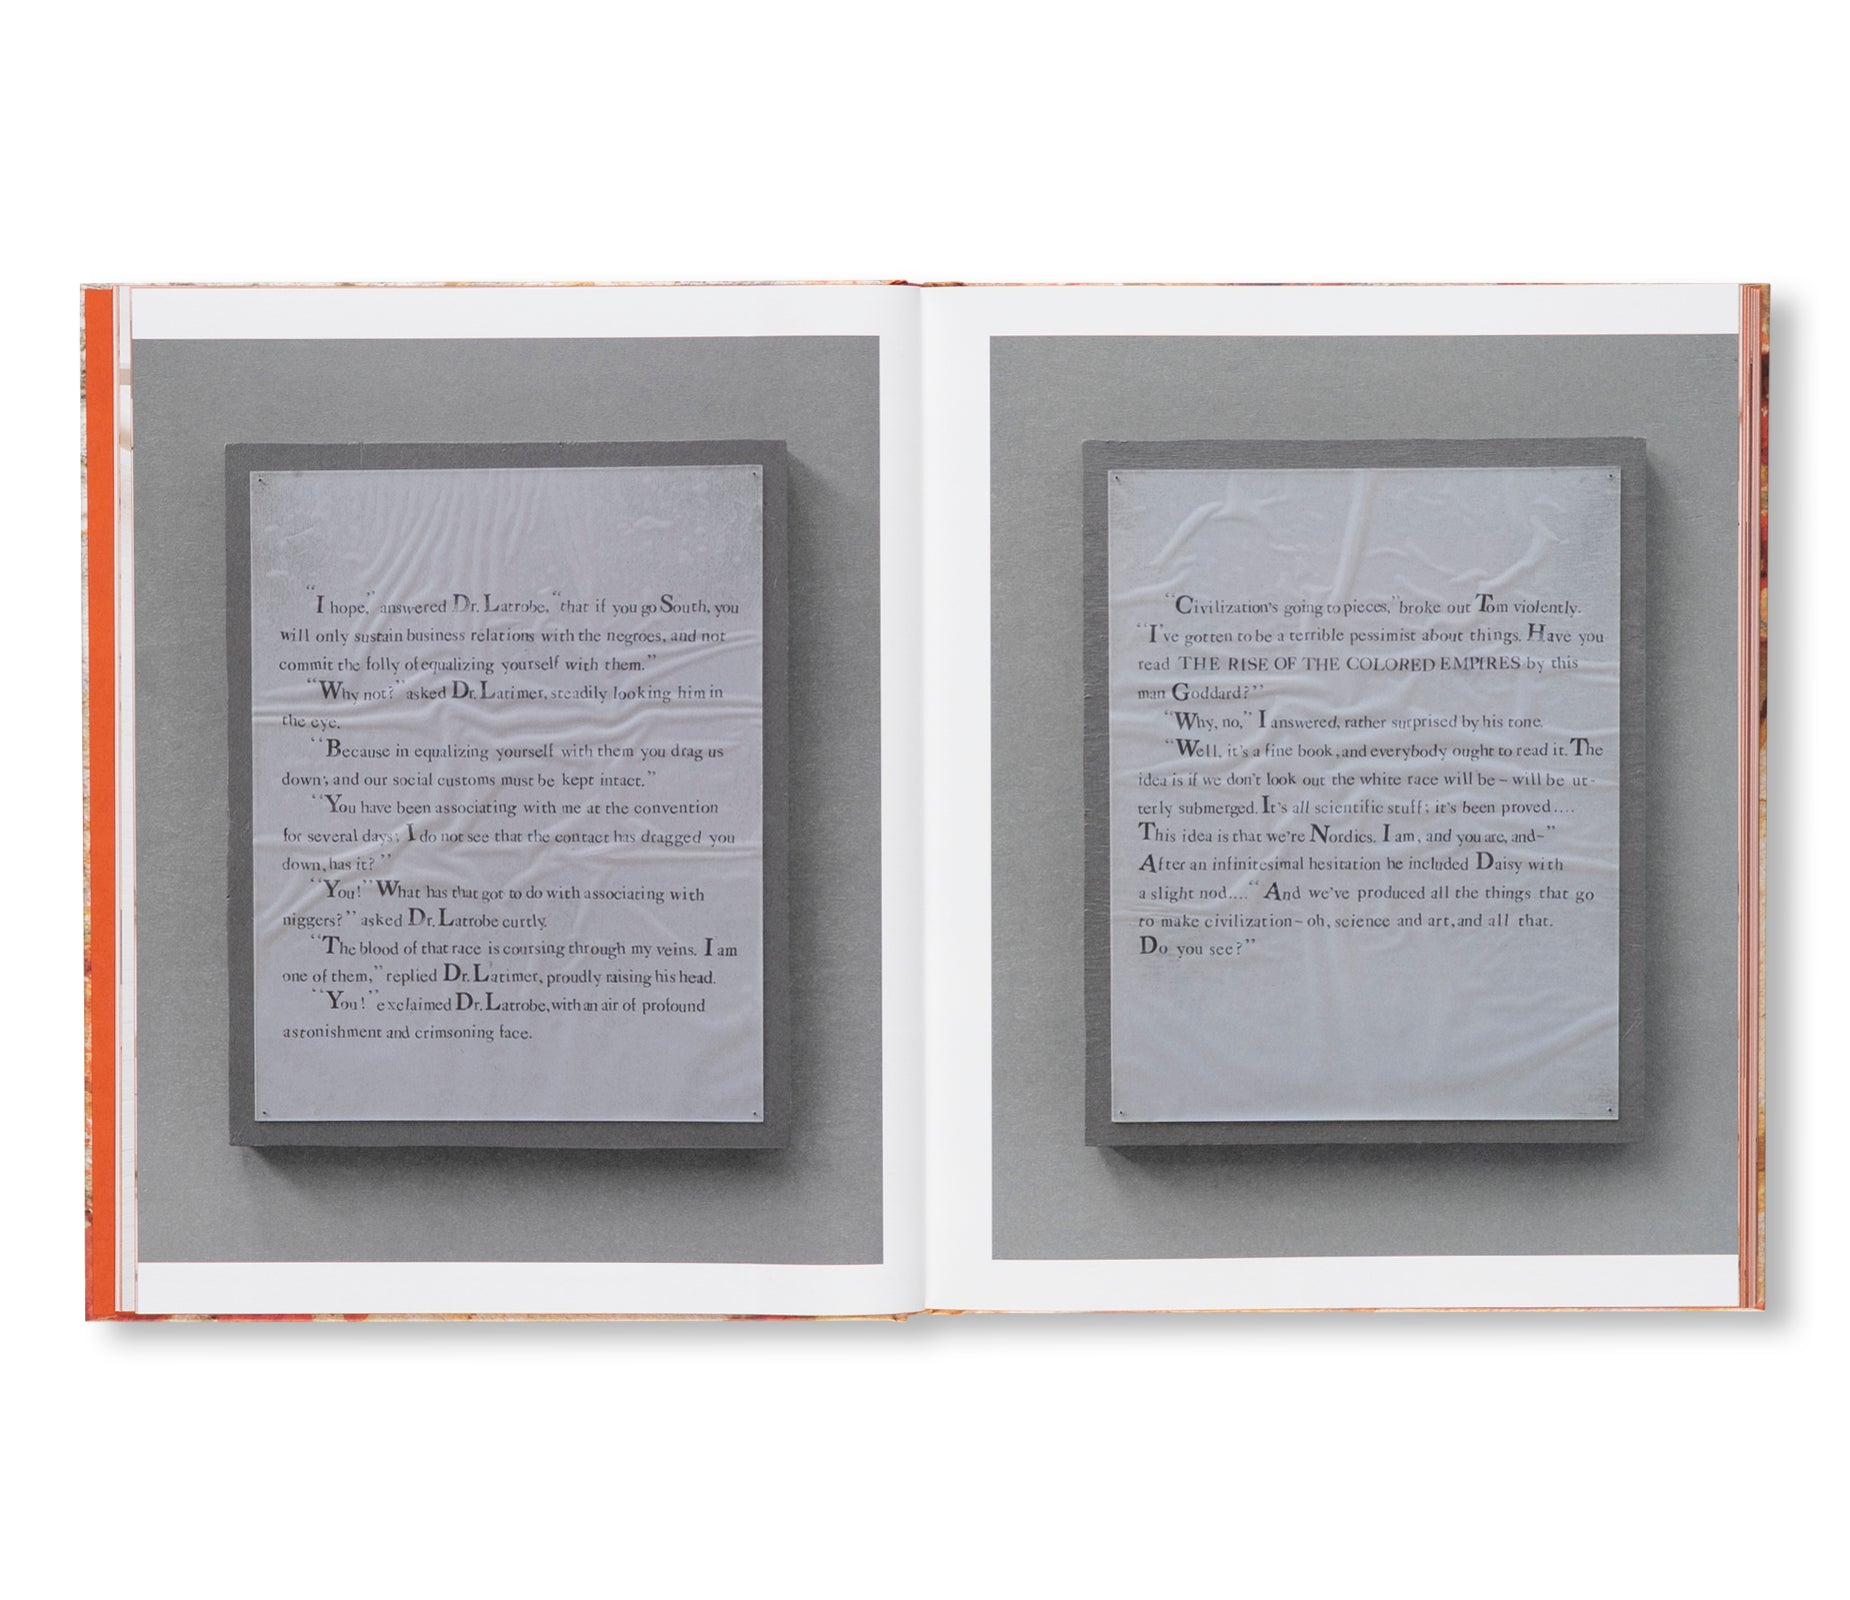 “I hope,” answered Dr. Latrobe, “that if you go South, you
will only sustain business relations with the negroes, and not
commit the folly of equalizing yourself with them.”
“Why not?” asked Dr. Latimer, steadily looking him in
the eye.
“Because in equalizing yourself with them you drag us
down; and our social customs must be kept intact.”
“You have been associating with me at the convention
for several days; I do not see that the contact has dragged you
down, has it?”
“You!” What has that got to do with associating with
niggers?” asked Dr. Latrobe curtly.
“The blood of that race is coursing through my veins. I am
one of them,” replied Dr. Latimer, proudly raising his head.
“You!” exclaimed Dr. Latrobe, with an air of profound
astonishment and crimsoning face.
“Civilization's going to pieces,” broke out Tom violently.
“I've gotten to be a terrible pessimist about things. Have you
read THE RISE OF THE COLORED EMPIRES by this
man Goddard?”
“Why, no,” I answered, rather surprised by his tone.
“Well, it's a fine book, and everybody ought to read it. The
idea is if we don't look out the white race will be – will be ut-
terly submerged. It's all scientific stuff; it's been proved....
This idea is that we're Nordics. I am, and you are, and–”
After an infinitesimal hesitation he included Daisy with
a slight nod.... “And we've produced all the things that go
to make civilization – oh, science and art, and all that.
Do you see?”